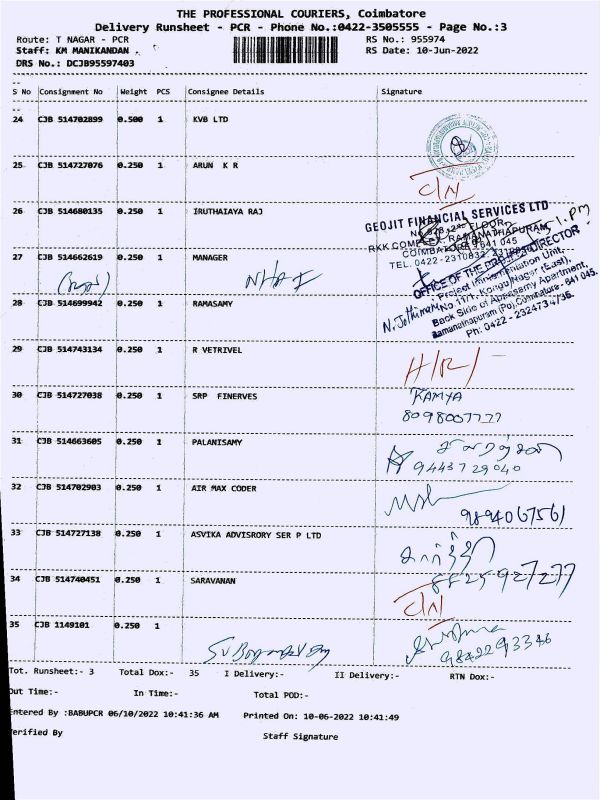 THE PROFESSIONAL COURIERS, Coimbatore
Delivery Runsheet - PCR - Phone No.:0422-3505555 - Page No.:3
Route: T NAGAR - PCR RS No.: 955974
Staff: KM MANIKANDAN RS Date: 10-Jun-2022
DRS No.: DCJB95597403
S No Consignment No Weight PCS Consignee Details Signature
24 CJB 514702899 0.500 1 KVB LTD
25 CJB 514727076 0.250 1 ARUN K R
C/N
26 CJB 514680135 0.250 1 IRUTHAIAYA RAJ
GEOJIT FINANCIAL SERVICES LTD
FLOOR,
RKK COMPLEX, RAMANATHAPURAM
COIMBATORE - 641 045
TEL. 0422-2310832,
27 CJB 514662619 0.250 1 MANAGER
NHAI
OFFICE OF THE PROJECT DIRECTOR
Project Implementation Unit,
No 11/1, Kongu Nagar (East),
Back Side of Apartment,
Ramanathapuram (Po), Coimbatore - 641 045.
Ph: 0422 - 2324734/36.
28 CJB 514699942 0.250 1 RAMASAMY
29 CJB 514743134 0.250 1 R VETRIVEL
30 CJB 514727038 0.250 1 SRP FINERVES
KAMYA
8098007777
31 CJB 514663605 0.250 1 PALANISAMY
9443729040
32 CJB 514702903 0.250 1 AIR MAX CODER
9894067561
33 CJB 514727138 0.250 1 ASVIKA ADVISRORY SER P LTD
34 CJB 514740451 0.250 1 SARAVANAN
C/N
35 CJB 1149101 0.250 1
9842293346
Tot. Runsheet:- 3 Total Dox:- 35 I Delivery:- II Delivery:- RTN Dox:-
Out Time:- In Time:- Total POD:-
Entered By :BABUPCR 06/10/2022 10:41:36 AM Printed On: 10-06-2022 10:41:49
Verified By Staff Signature